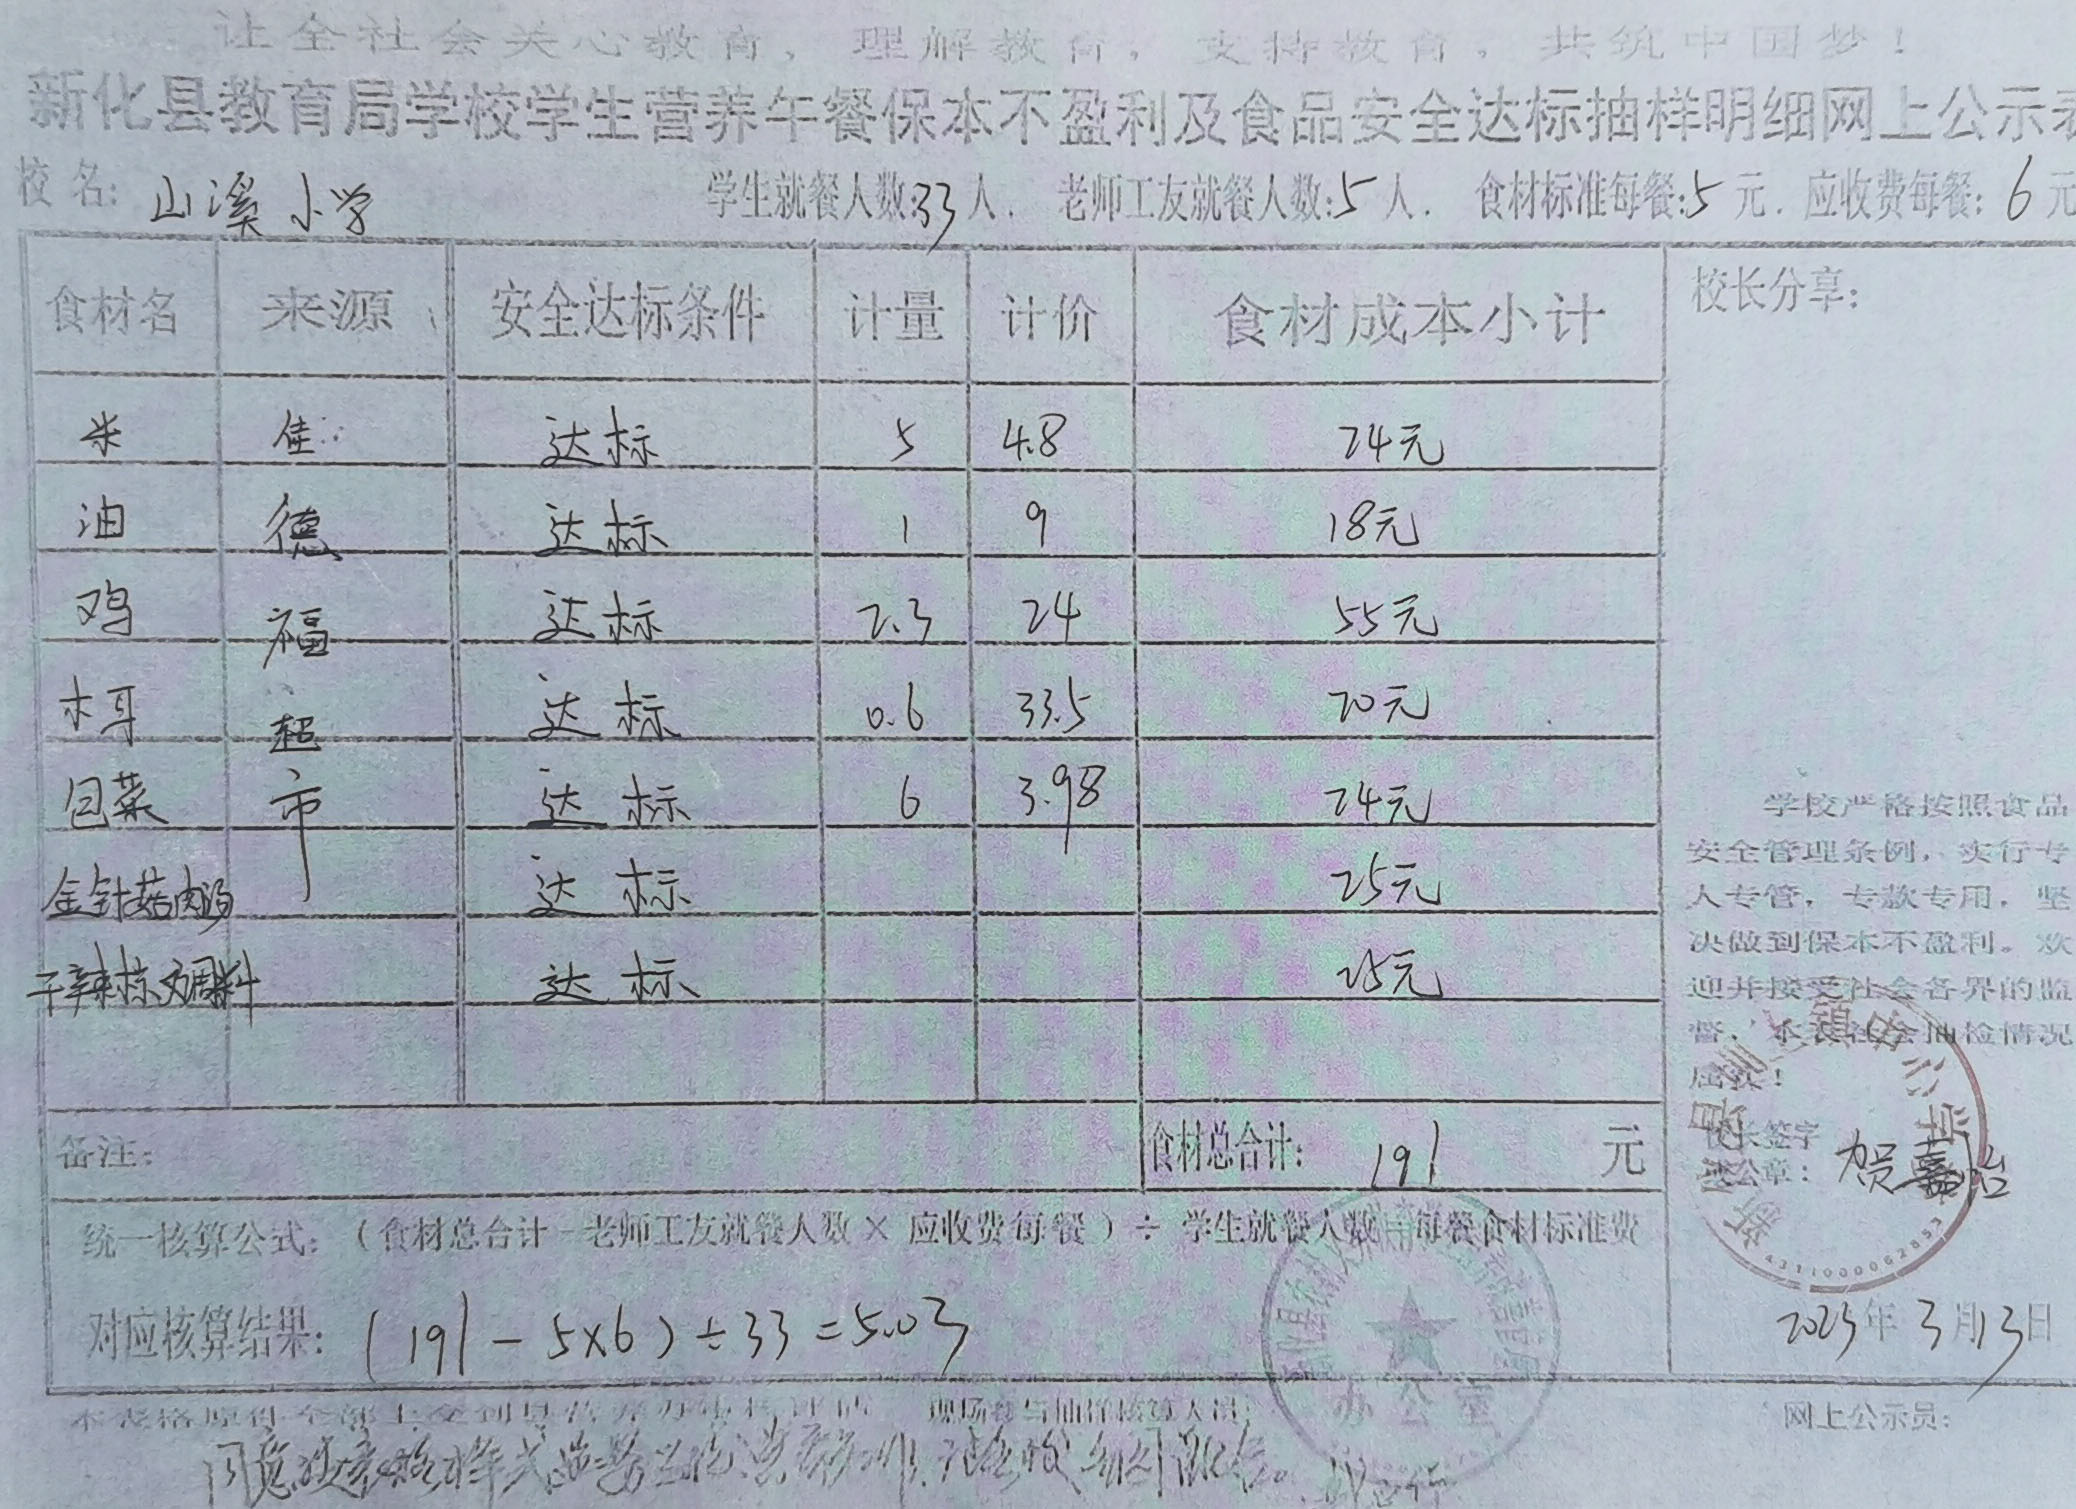 让全社会关心教育，理解教育，支持教育，共筑中国梦！
新化县教育局学校学生营养午餐保本不盈利及食品安全达标抽样明细网上公示表
校名：山溪小学 学生就餐人数:33人. 老师工友就餐人数:5人. 食材标准每餐:5元. 应收费每餐：6元
食材名 来源 安全达标条件 计量 计价 食材成本小计 校长分享：
米 佳 达标 5 4.8 24元
油 德 达标 1 9 18元
鸡 福 达标 2.3 24 55元
木耳 超 达标 0.6 33.5 20元
白菜 市 达标 6 3.98 24元
金针菇肉汤 达标 25元
干辣椒及调料 达标 25元
学校严格按照食品
安全管理条例，实行专
人专管，专款专用，坚
决做到保本不盈利。欢
迎并接受社会各界的监
督，本表社会抽检情况
属实！
备注： 食材总合计： 191 元
校长签字
及公章：贺嘉治
统一核算公式：（食材总合计-老师工友就餐人数×应收费每餐）÷学生就餐人数=每餐食材标准费
对应核算结果：(191-5×6)÷33=5.03
2023年3月13日
办公室
4311000062853
现场参与抽样核算人员：
网上公示员：